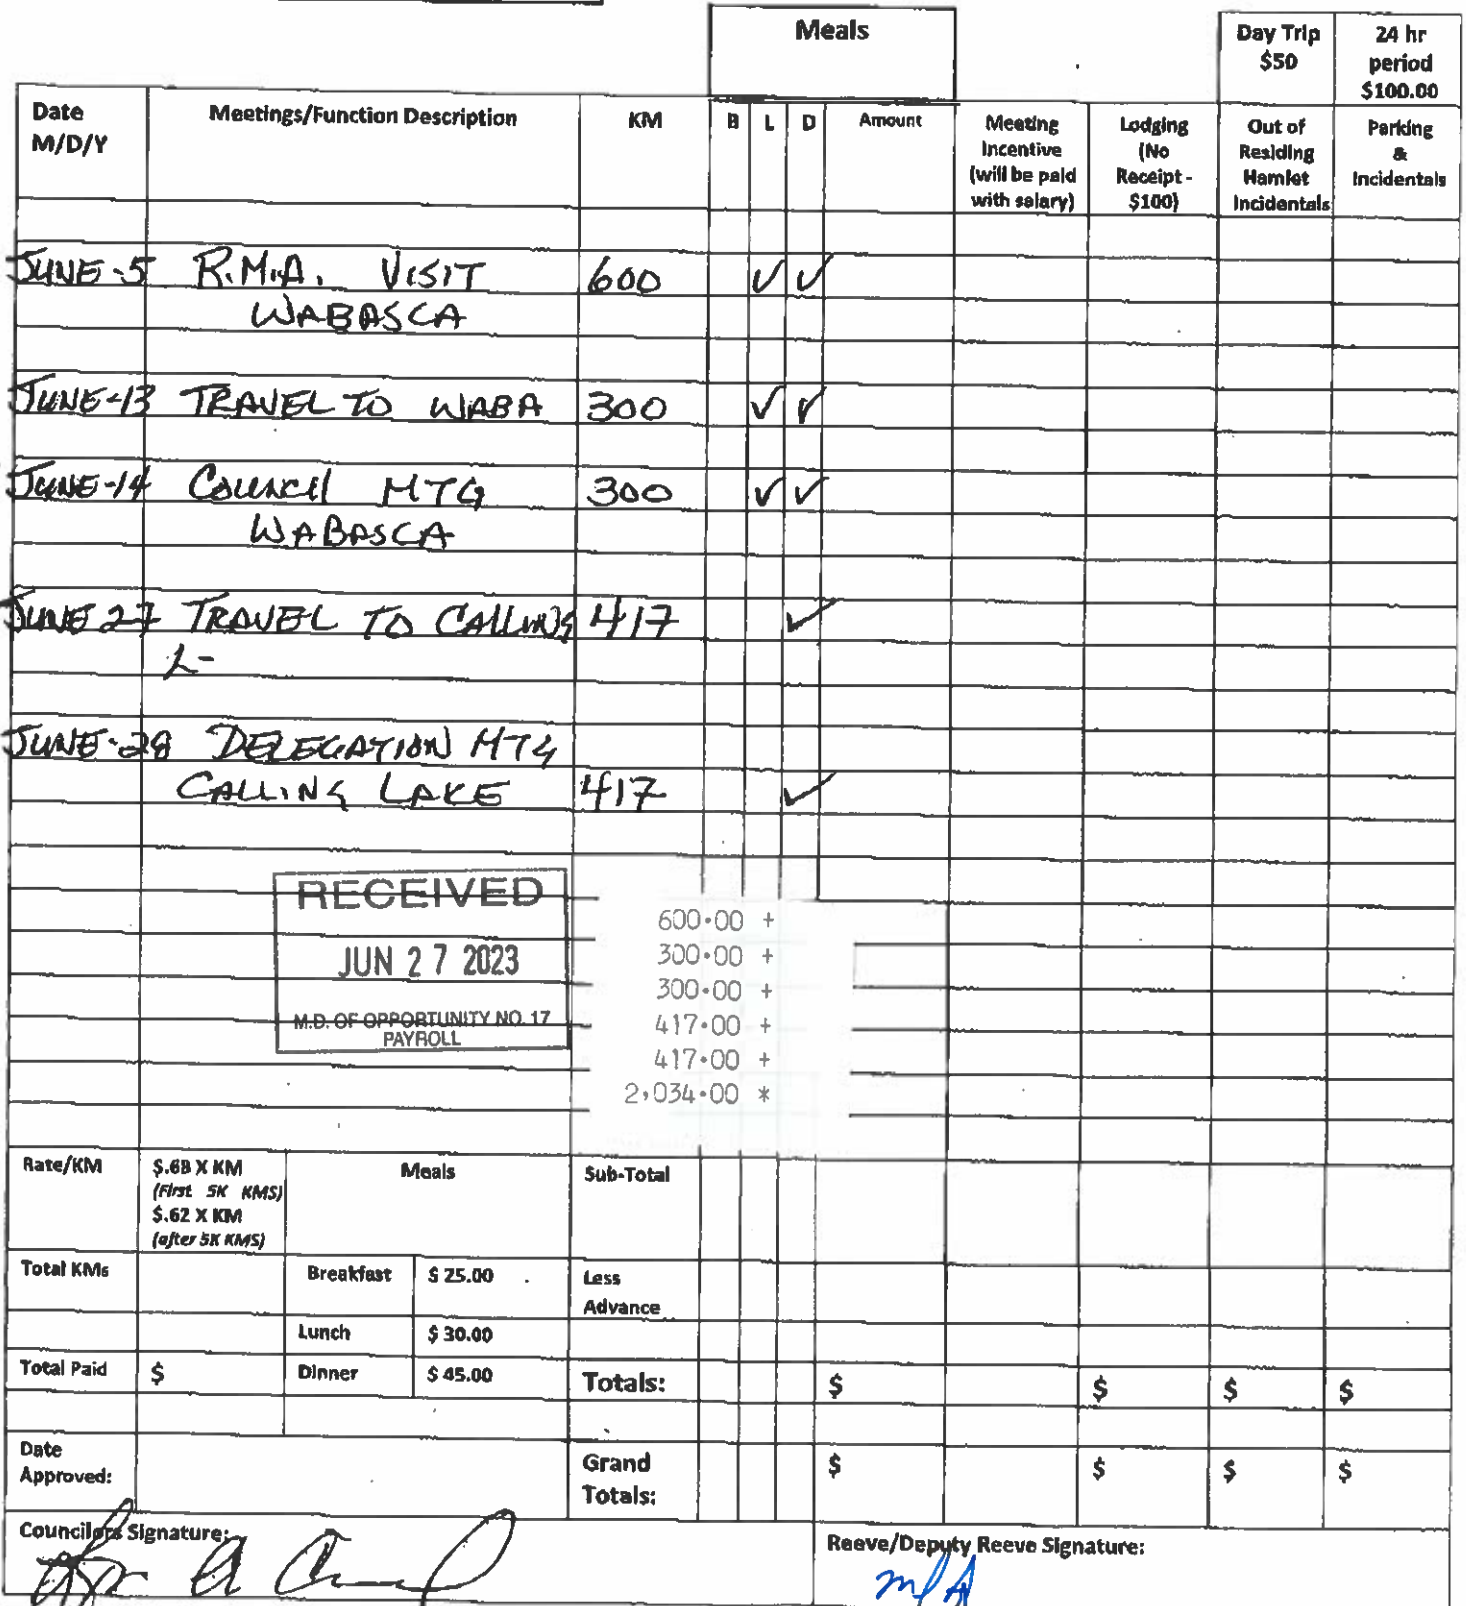 Meals
Day Trip $50
24 hr period $100.00
Date M/D/Y
Meetings/Function Description
KM
B L D
Amount
Meeting Incentive (will be paid with salary)
Lodging (No Receipt - $100)
Out of Residing Hamlet Incidentals
Parking & Incidentals
JUNE-5 R.M.A. VISIT 600 ✓ ✓
WABASCA
JUNE-13 TRAVEL TO WABA 300 ✓ ✓
JUNE-14 COUNCIL MTG 300 ✓ ✓
WABASCA
JUNE 27 TRAVEL TO CALLING 417 ✓
L-
JUNE-28 DELEGATION MTG
CALLING LAKE 417 ✓
RECEIVED
JUN 27 2023
M.D. OF OPPORTUNITY NO. 17
PAYROLL
600.00 +
300.00 +
300.00 +
417.00 +
417.00 +
2,034.00 *
Rate/KM
$.68 X KM
(First 5K KMS)
$.62 X KM
(after 5K KMS)
Meals
Sub-Total
Total KMs
Breakfast $ 25.00
Less Advance
Lunch $ 30.00
Total Paid $
Dinner $ 45.00
Totals: $ $ $ $
Date Approved:
Grand Totals: $ $ $ $
Councilors Signature:
Reeve/Deputy Reeve Signature: